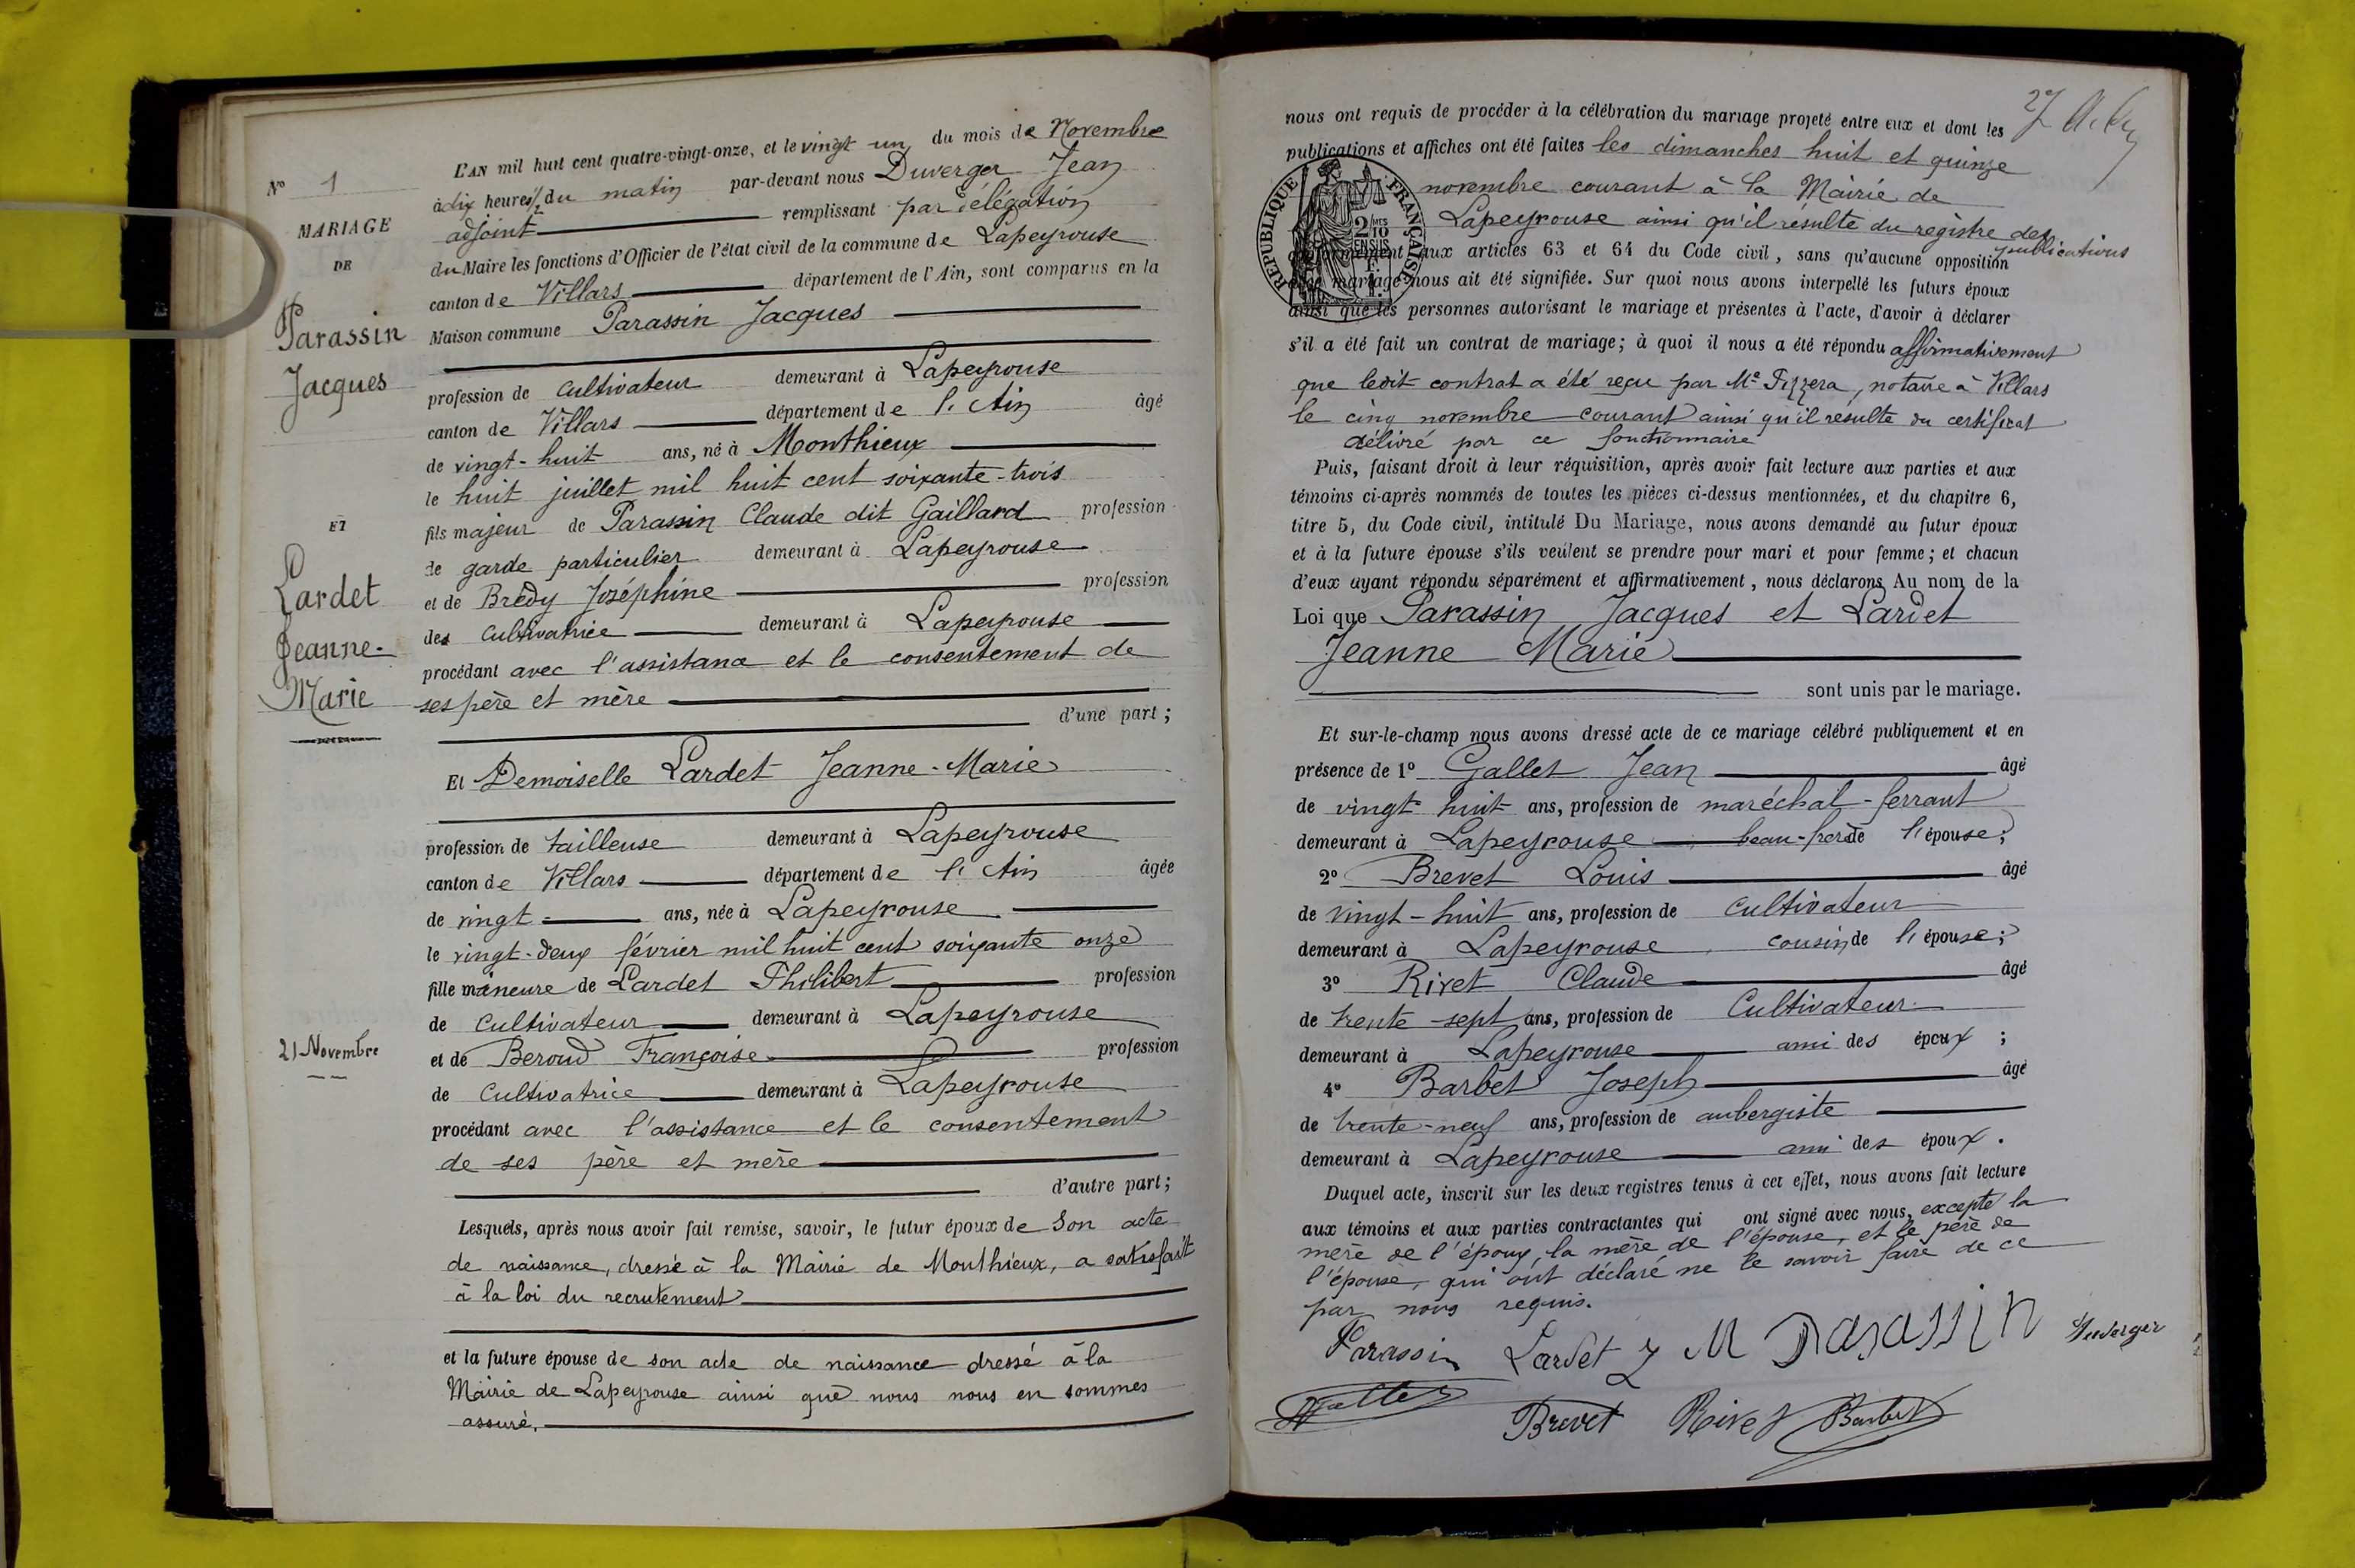 N° 1
MARIAGE
DE
Parassin
Jacques
ET
Lardet
Jeanne-
Marie
21 Novembre
L'AN mil huit cent quatre-vingt-onze, et le vingt-un du mois de Novembre
à dix heures ½ du matin par-devant nous Duverger Jean
adjoint remplissant par délégation
du Maire les fonctions d'Officier de l'état civil de la commune de Lapeyrouse
canton de Villars département de l'Ain, sont comparus en la
Maison commune Parassin Jacques
profession de cultivateur demeurant à Lapeyrouse
canton de Villars département de l'Ain âgé
de vingt-huit ans, né à Monthieux
le huit juillet mil huit cent soixante-trois
fils majeur de Parassin Claude dit Gaillard profession
de garde particulier demeurant à Lapeyrouse
et de Brédy Joséphine profession
des cultivatrice demeurant à Lapeyrouse
procédant avec l'assistance et le consentement de
ses père et mère
d'une part;
Et Demoiselle Lardet Jeanne-Marie
profession de tailleuse demeurant à Lapeyrouse
canton de Villars département de l'Ain âgée
de vingt ans, née à Lapeyrouse
le vingt-deux février mil huit cent soixante onze
fille mineure de Lardet Philibert profession
de cultivateur demeurant à Lapeyrouse
et de Beroud Françoise profession
de cultivatrice demeurant à Lapeyrouse
procédant avec l'assistance et le consentement
de ses père et mère
d'autre part;
Lesquels, après nous avoir fait remise, savoir, le futur époux de son acte
de naissance, dressé à la Mairie de Monthieux, a satisfait
à la loi du recrutement
et la future épouse de son acte de naissance dressé à la
Mairie de Lapeyrouse ainsi que nous nous en sommes
assuré.
27
nous ont requis de procéder à la célébration du mariage projeté entre eux et dont les
publications et affiches ont été faites les dimanches huit et quinze
novembre courant à la Mairie de
Lapeyrouse ainsi qu'il résulte du registre des
publications
RÉPUBLIQUE FRANÇAISE
conformément aux articles 63 et 64 du Code civil, sans qu'aucune opposition
mariage nous ait été signifiée. Sur quoi nous avons interpellé les futurs époux
ainsi que les personnes autorisant le mariage et présentes à l'acte, d'avoir à déclarer
s'il a été fait un contrat de mariage; à quoi il nous a été répondu affirmativement
que ledit contrat a été reçu par Me Fizzera, notaire à Villars
le cinq novembre courant ainsi qu'il résulte du certificat
délivré par ce fonctionnaire
Puis, faisant droit à leur réquisition, après avoir fait lecture aux parties et aux
témoins ci-après nommés de toutes les pièces ci-dessus mentionnées, et du chapitre 6,
titre 5, du Code civil, intitulé Du Mariage, nous avons demandé au futur époux
et à la future épouse s'ils veulent se prendre pour mari et pour femme; et chacun
d'eux ayant répondu séparément et affirmativement, nous déclarons Au nom de la
Loi que Parassin Jacques et Lardet
Jeanne Marie
sont unis par le mariage.
Et sur-le-champ nous avons dressé acte de ce mariage célébré publiquement et en
présence de 1° Gallet Jean âgé
de vingt huit ans, profession de maréchal-ferrant
demeurant à Lapeyrouse beau-frère de l'épouse;
2° Brevet Louis âgé
de vingt-huit ans, profession de cultivateur
demeurant à Lapeyrouse, cousin de l'épouse;
3° Rivet Claude âgé
de trente-sept ans, profession de Cultivateur
demeurant à Lapeyrouse ami des époux;
4° Barbet Joseph âgé
de trente-neuf ans, profession de aubergiste
demeurant à Lapeyrouse ami des époux.
Duquel acte, inscrit sur les deux registres tenus à cet effet, nous avons fait lecture
aux témoins et aux parties contractantes qui ont signé avec nous, excepté la
mère de l'époux, la mère de l'épouse, et le père de
l'épouse, qui ont déclaré ne le savoir faire de ce
par nous requis.
Parassin Lardet J M Parassin Duverger
Gallet Brevet Rivet Barbet